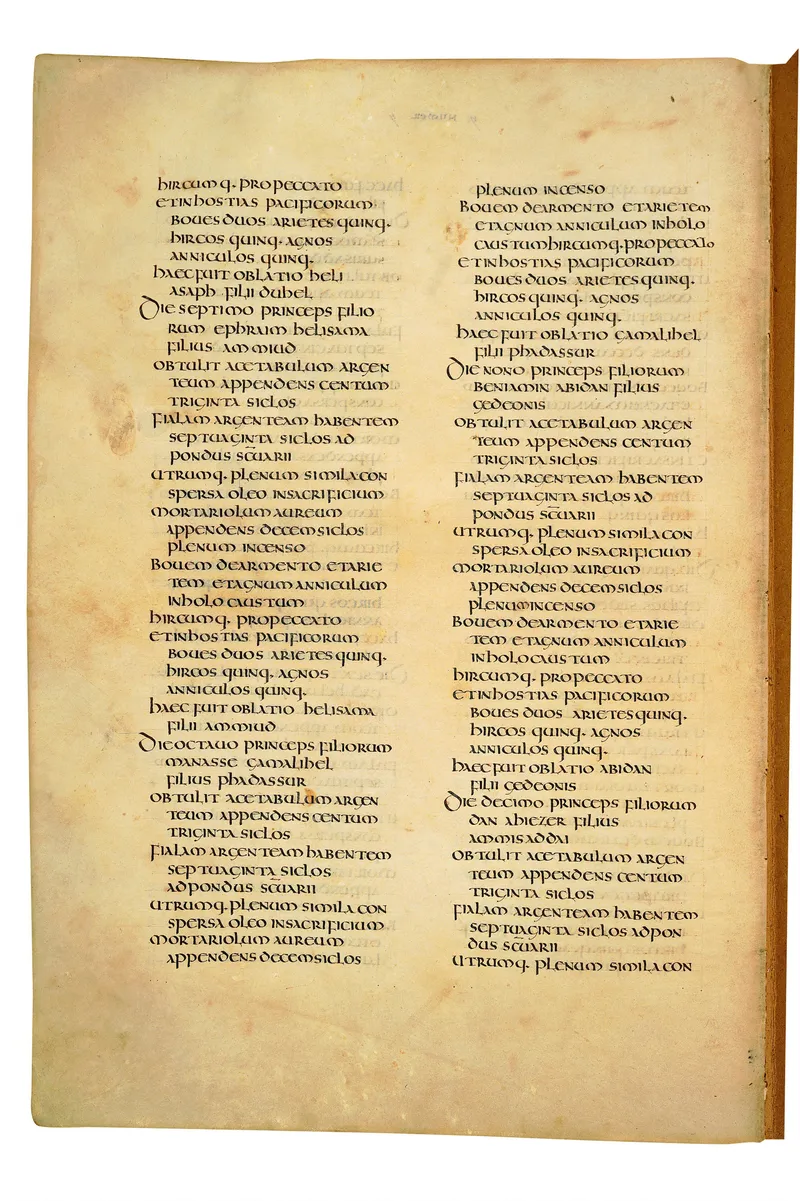 hircumq. pro peccato
et in hostias pacificorum
boues duos arietes quinq.
hircos quinq. agnos
anniculos quinq.
haec fuit oblatio heli
asaph filii duhel
Die septimo princeps filio
rum ephraim helisama
filius ammiud
obtulit acetabulum argen
teum appendens centum
triginta siclos
fialam argenteam habentem
septuaginta siclos ad
pondus scuarii
utrumq. plenum simila con
spersa oleo in sacrificium
mortariolum aureum
appendens decem siclos
plenum incenso
Bouem de armento et arie
tem et agnum anniculum
in holocaustum
hircumq. pro peccato
et in hostias pacificorum
boues duos arietes quinq.
hircos quinq. agnos
anniculos quinq.
haec fuit oblatio helisama
filii ammiud
Die octauo princeps filiorum
manasse gamalihel
filius phadassur
obtulit acetabulum argen
teum appendens centum
triginta siclos
fialam argenteam habentem
septuaginta siclos
ad pondus scuarii
utrumq. plenum simila con
spersa oleo in sacrificium
mortariolum aureum
appendens decem siclos
plenum incenso
Bouem de armento et arietem
et agnum anniculum in holo
caustum hircumq. pro peccato
et in hostias pacificorum
boues duos arietes quinq.
hircos quinq. agnos
anniculos quinq.
haec fuit oblatio gamalihel
filii phadassur
Die nono princeps filiorum
beniamin abidan filius
gedeonis
obtulit acetabulum argen
teum appendens centum
triginta siclos
fialam argenteam habentem
septuaginta siclos ad
pondus scuarii
utrumq. plenum simila con
spersa oleo in sacrificium
mortariolum aureum
appendens decem siclos
plenum incenso
Bouem de armento et arie
tem et agnum anniculum
in holocaustum
hircumq. pro peccato
et in hostias pacificorum
boues duos arietes quinq.
hircos quinq. agnos
anniculos quinq.
haec fuit oblatio abidan
filii gedeonis
Die decimo princeps filiorum
dan ahiezer filius
ammisaddai
obtulit acetabulum argen
teum appendens centum
triginta siclos
fialam argenteam habentem
septuaginta siclos ad pon
dus scuarii
utrumq. plenum simila con